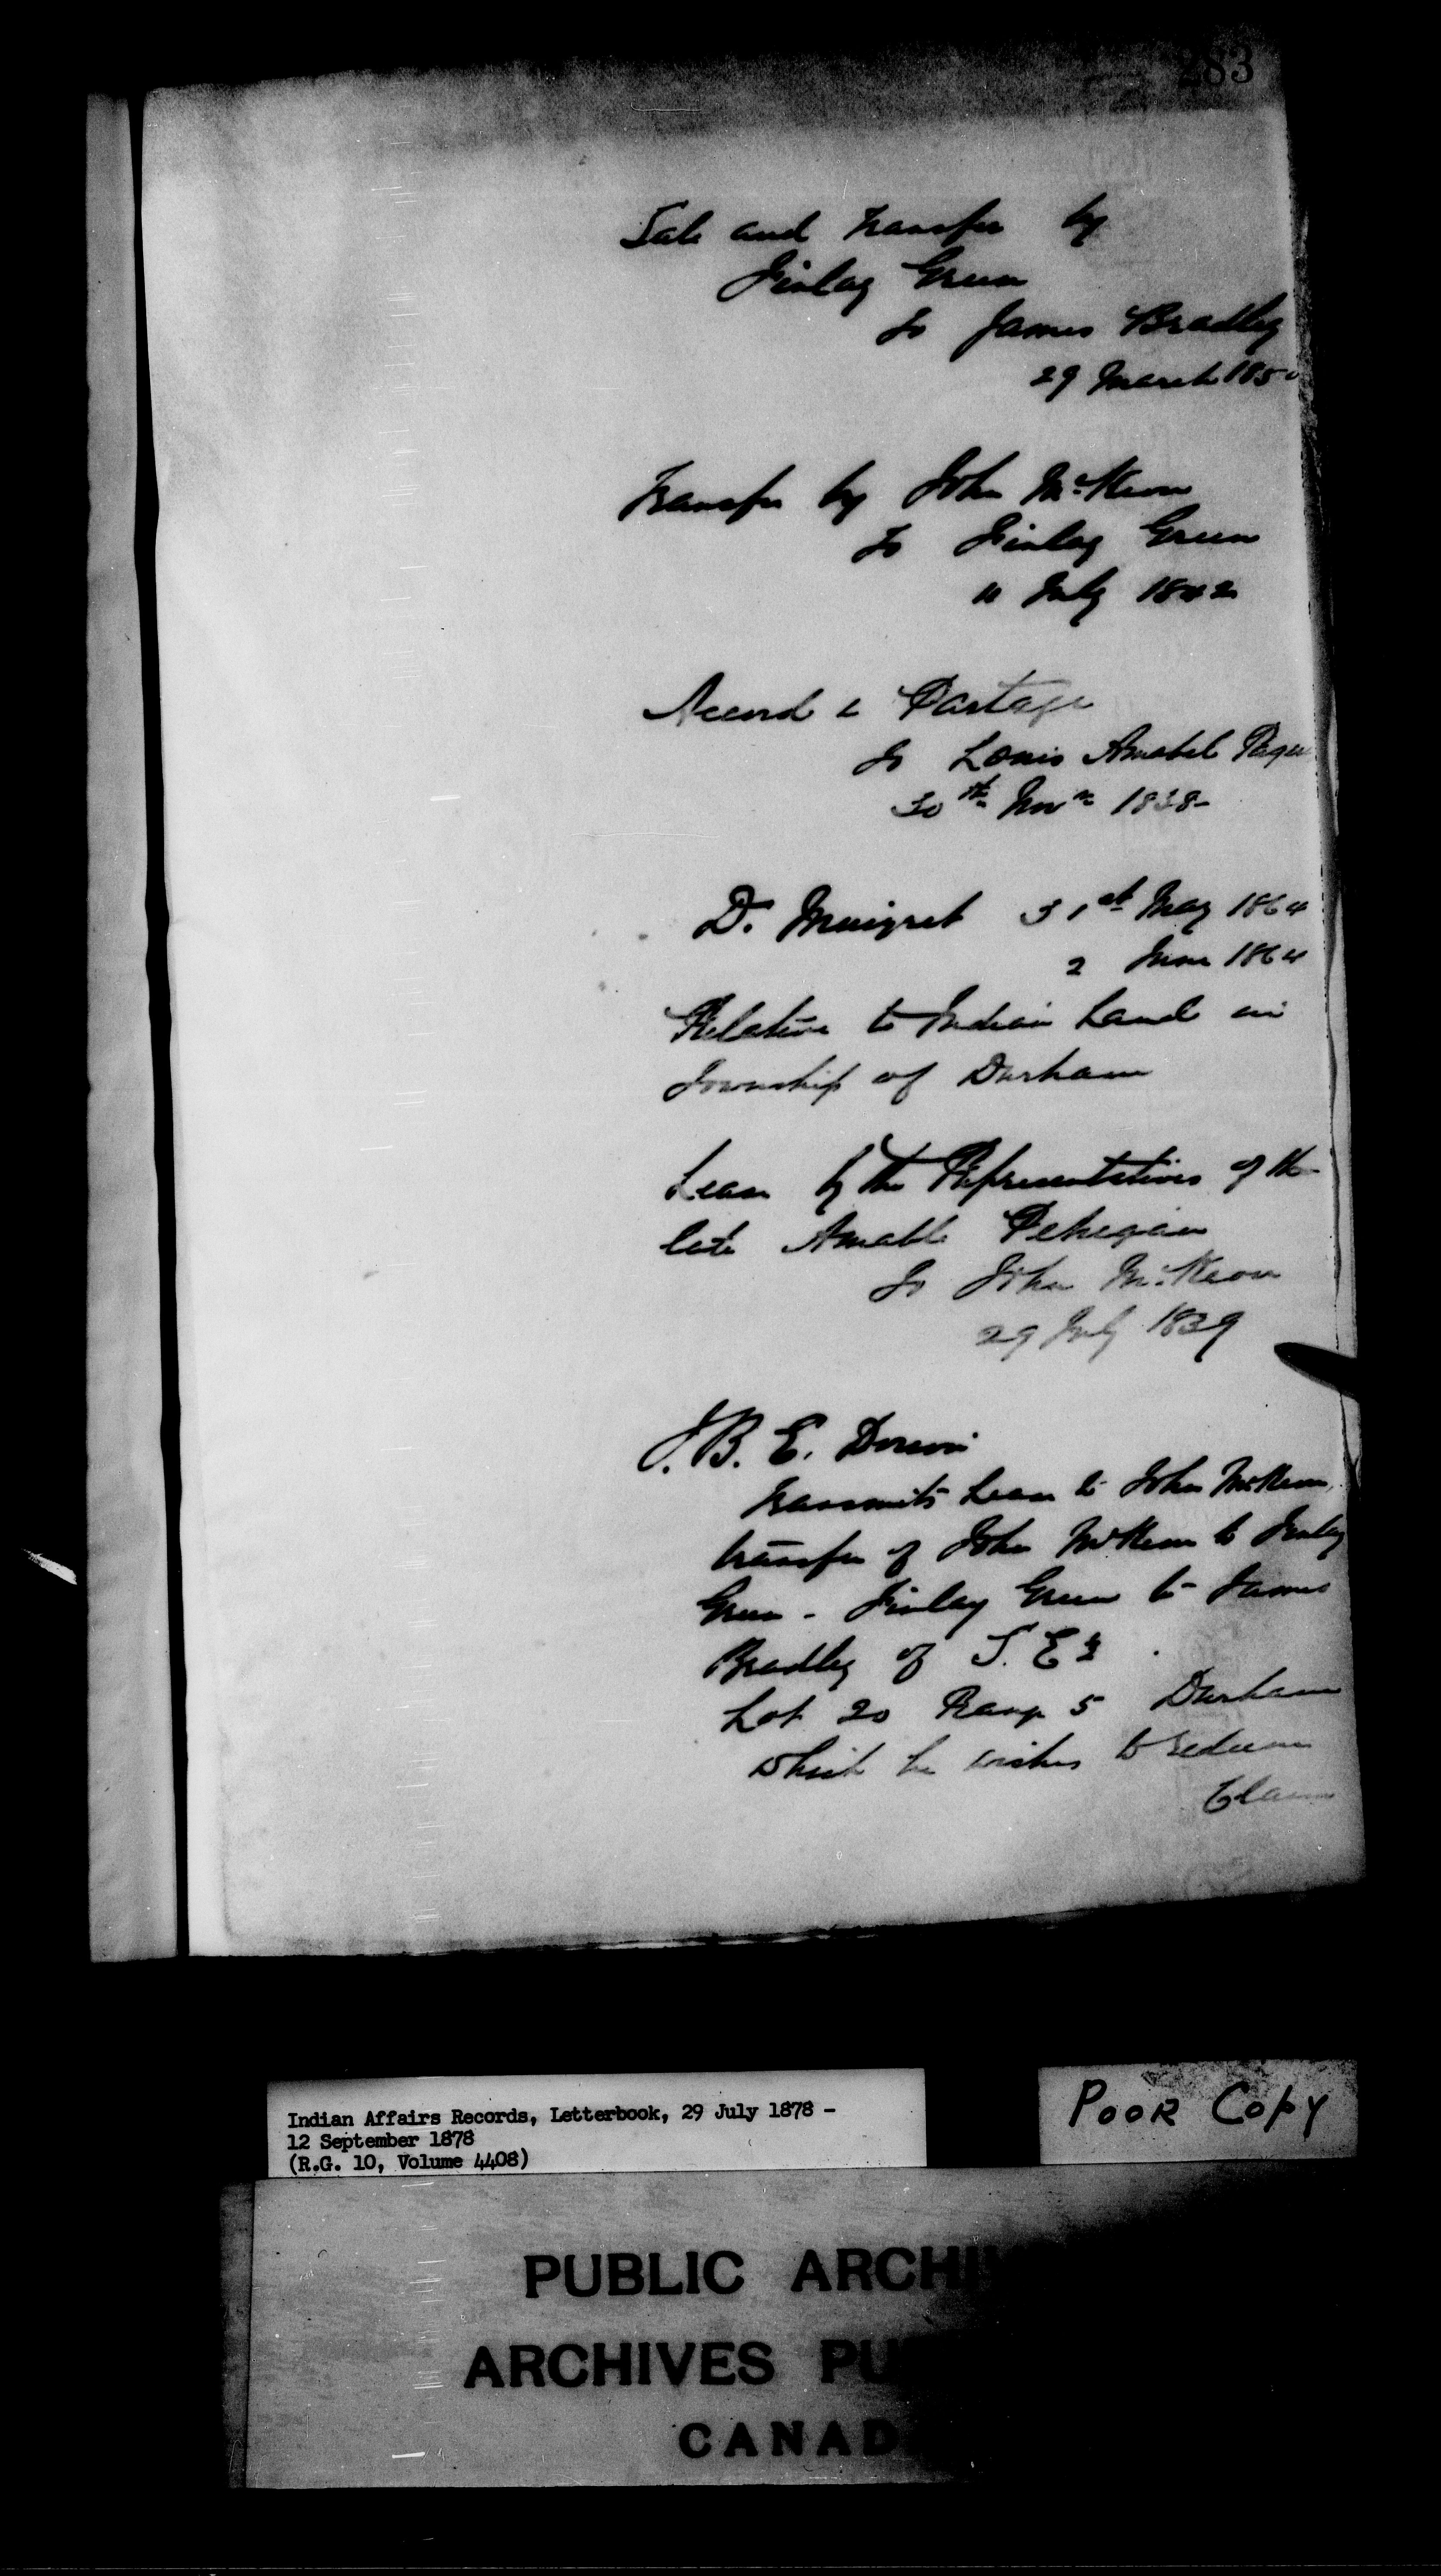 283
Sale and Transfer by
Finlay Green
To James Bradley
29 March 185
Transfer by John McKeon
To Finlay Green
11 July 1842
Accord & Partage
To Louis Amabel
30th Novr 1838
D. 31st May 1864
2 June 1864
Relative to Indian Land in
Township of Durham
Lease by the Representatives of the
late Amable
To John McKeon
29 July 1839
J. B. E. Dorion
Transmits Lease to John McKeon
transfer of John McKeon to Finlay
Green - Finlay Green to James
Bradley of S. E ½
Lot 20 Range 5 Durham
which he wishes to
Claim
Indian Affairs Records, Letterbook, 29 July 1878 -
12 September 1878
(R.G. 10, Volume 4408)
POOR COPY
PUBLIC ARCHI
ARCHIVES PU
CANAD